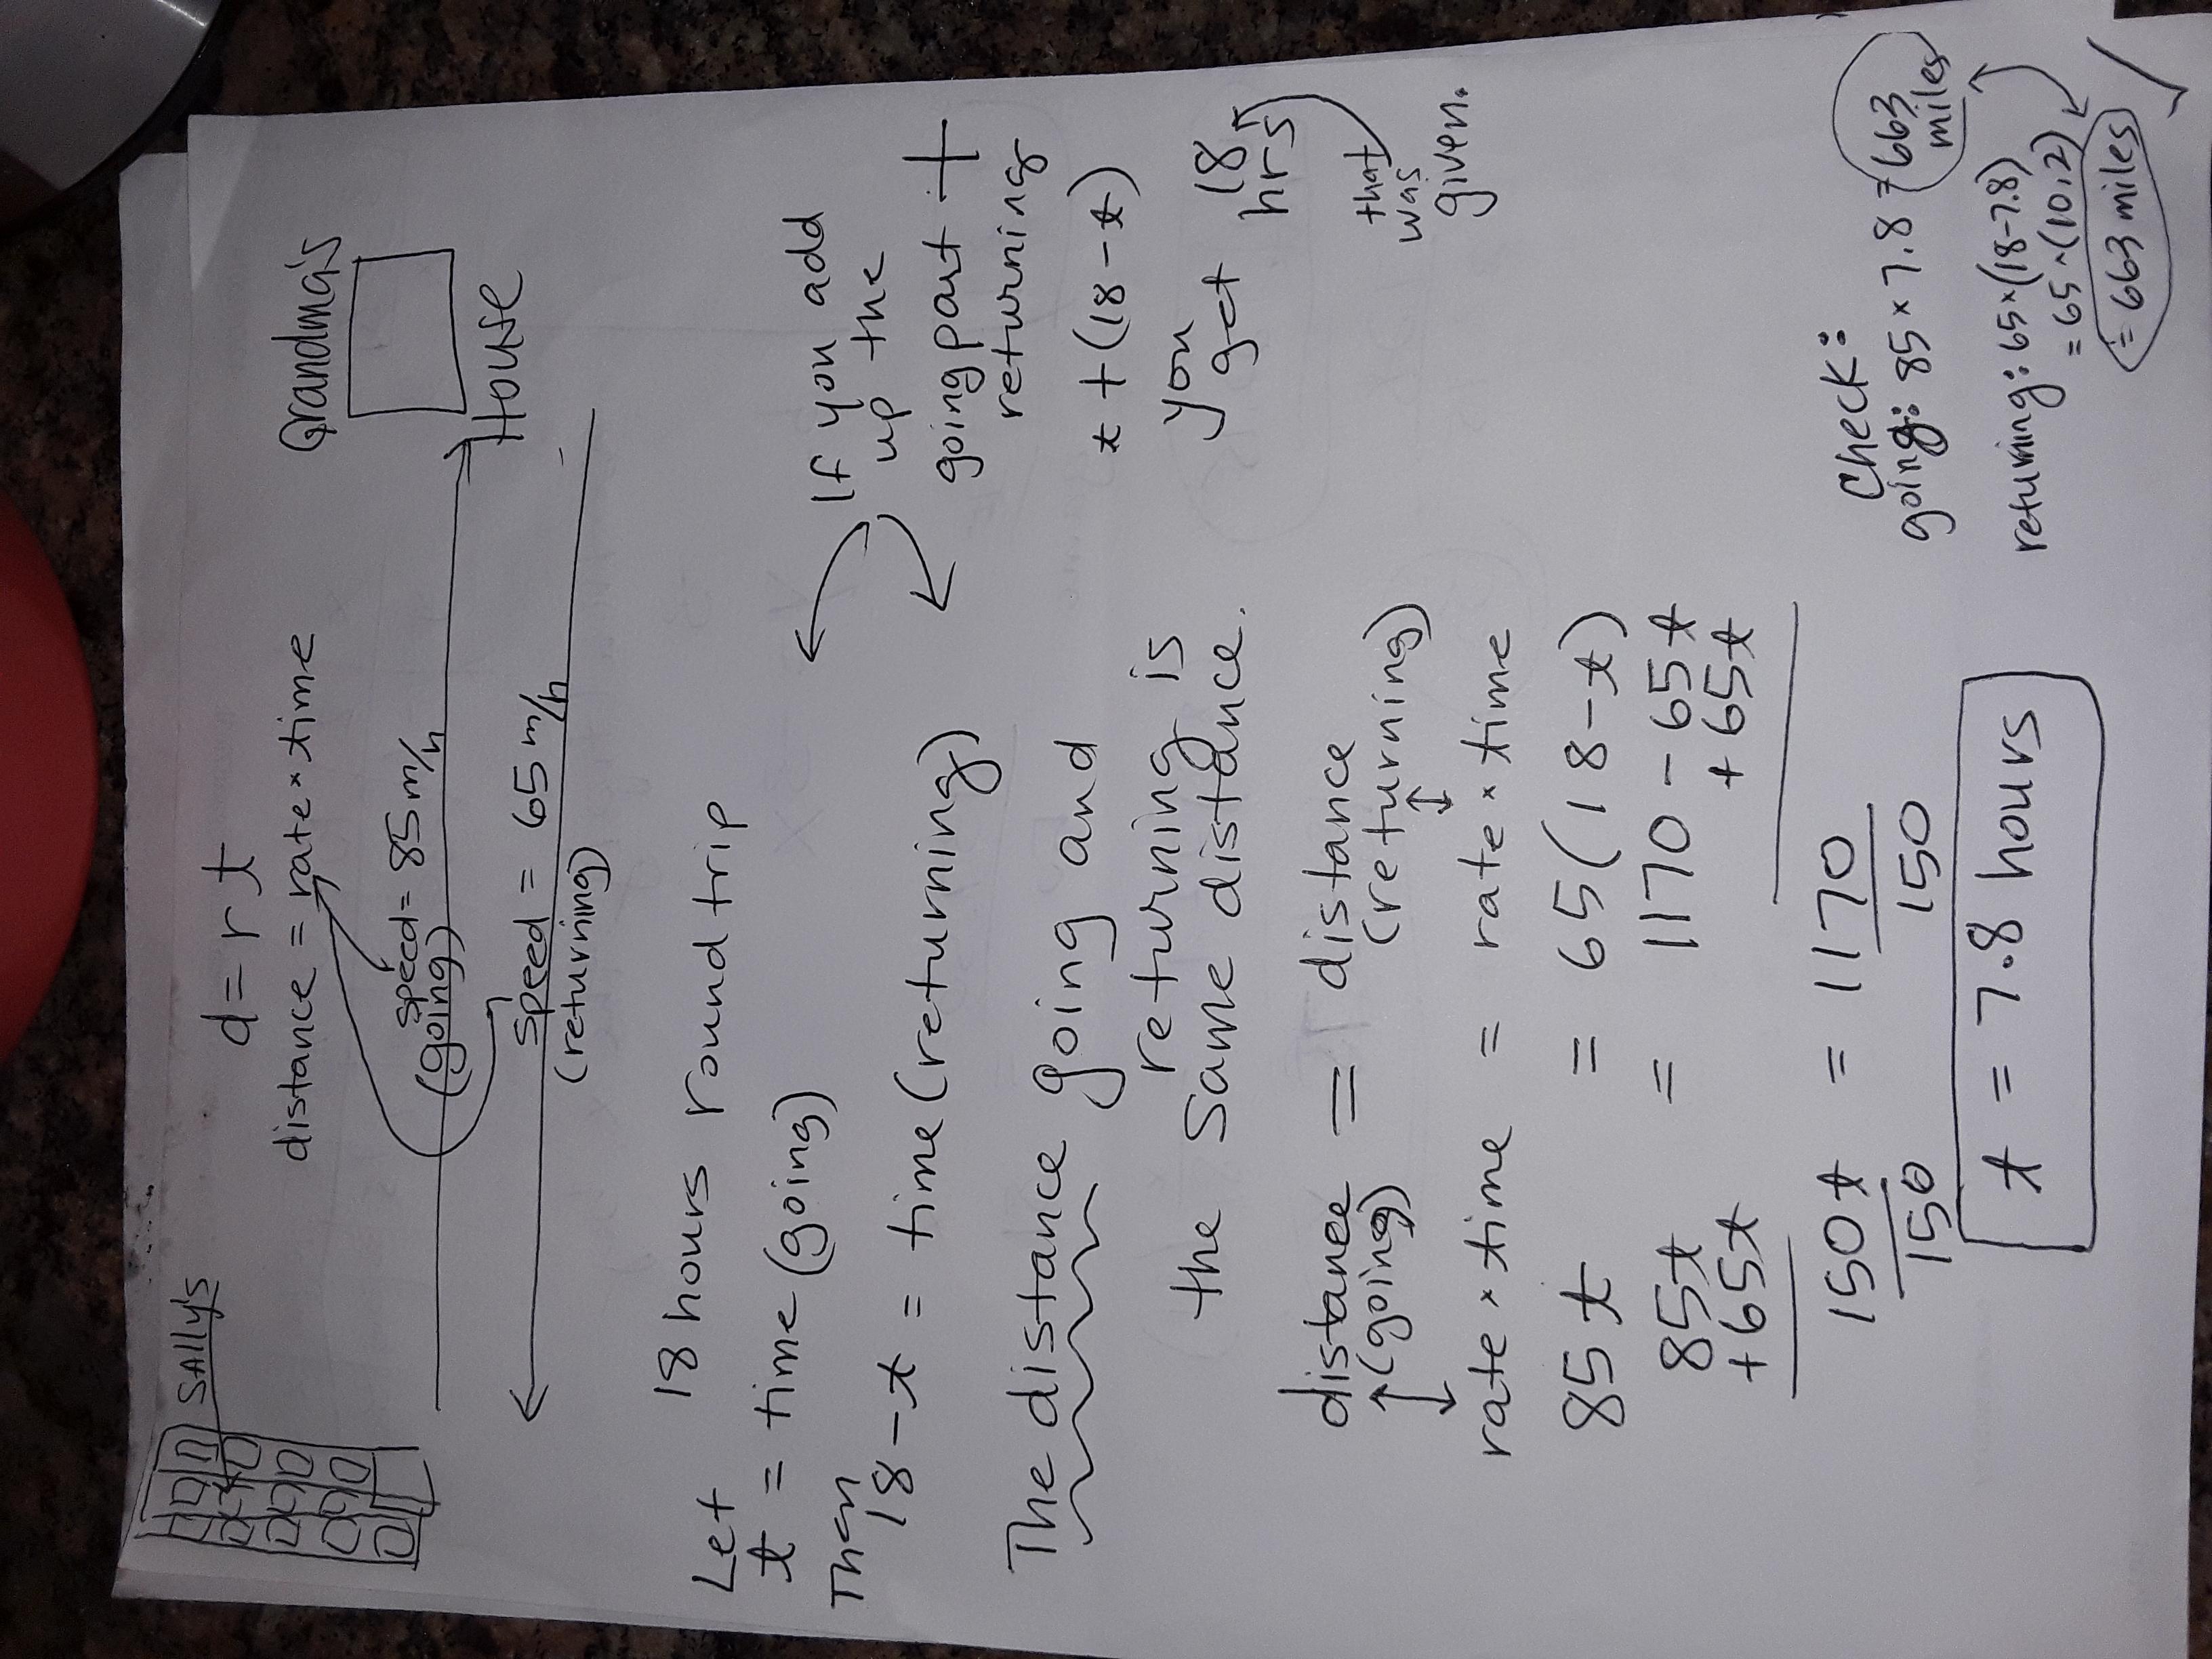 SAlly's
d = r t
distance = rate × time
Grandma's
House
speed = 85 m/h
(going)
speed = 65 m/h
(returning)
18 hours round trip
Let
t = time (going)
Then
18 - t = time (returning)
If you add
up the
going part +
returning
t + (18 - t)
you
get 18
hrs
that
was
given.
The distance going and
returning is
the same distance.
distance = distance
(going) (returning)
rate × time = rate × time
85 t = 65 (18 - t)
85t = 1170 - 65t
+65t + 65t
150 t = 1170
150 150
t = 7.8 hours
Check:
going: 85 × 7.8 = 663
miles
returning: 65 × (18-7.8)
= 65 × (10.2)
= 663 miles